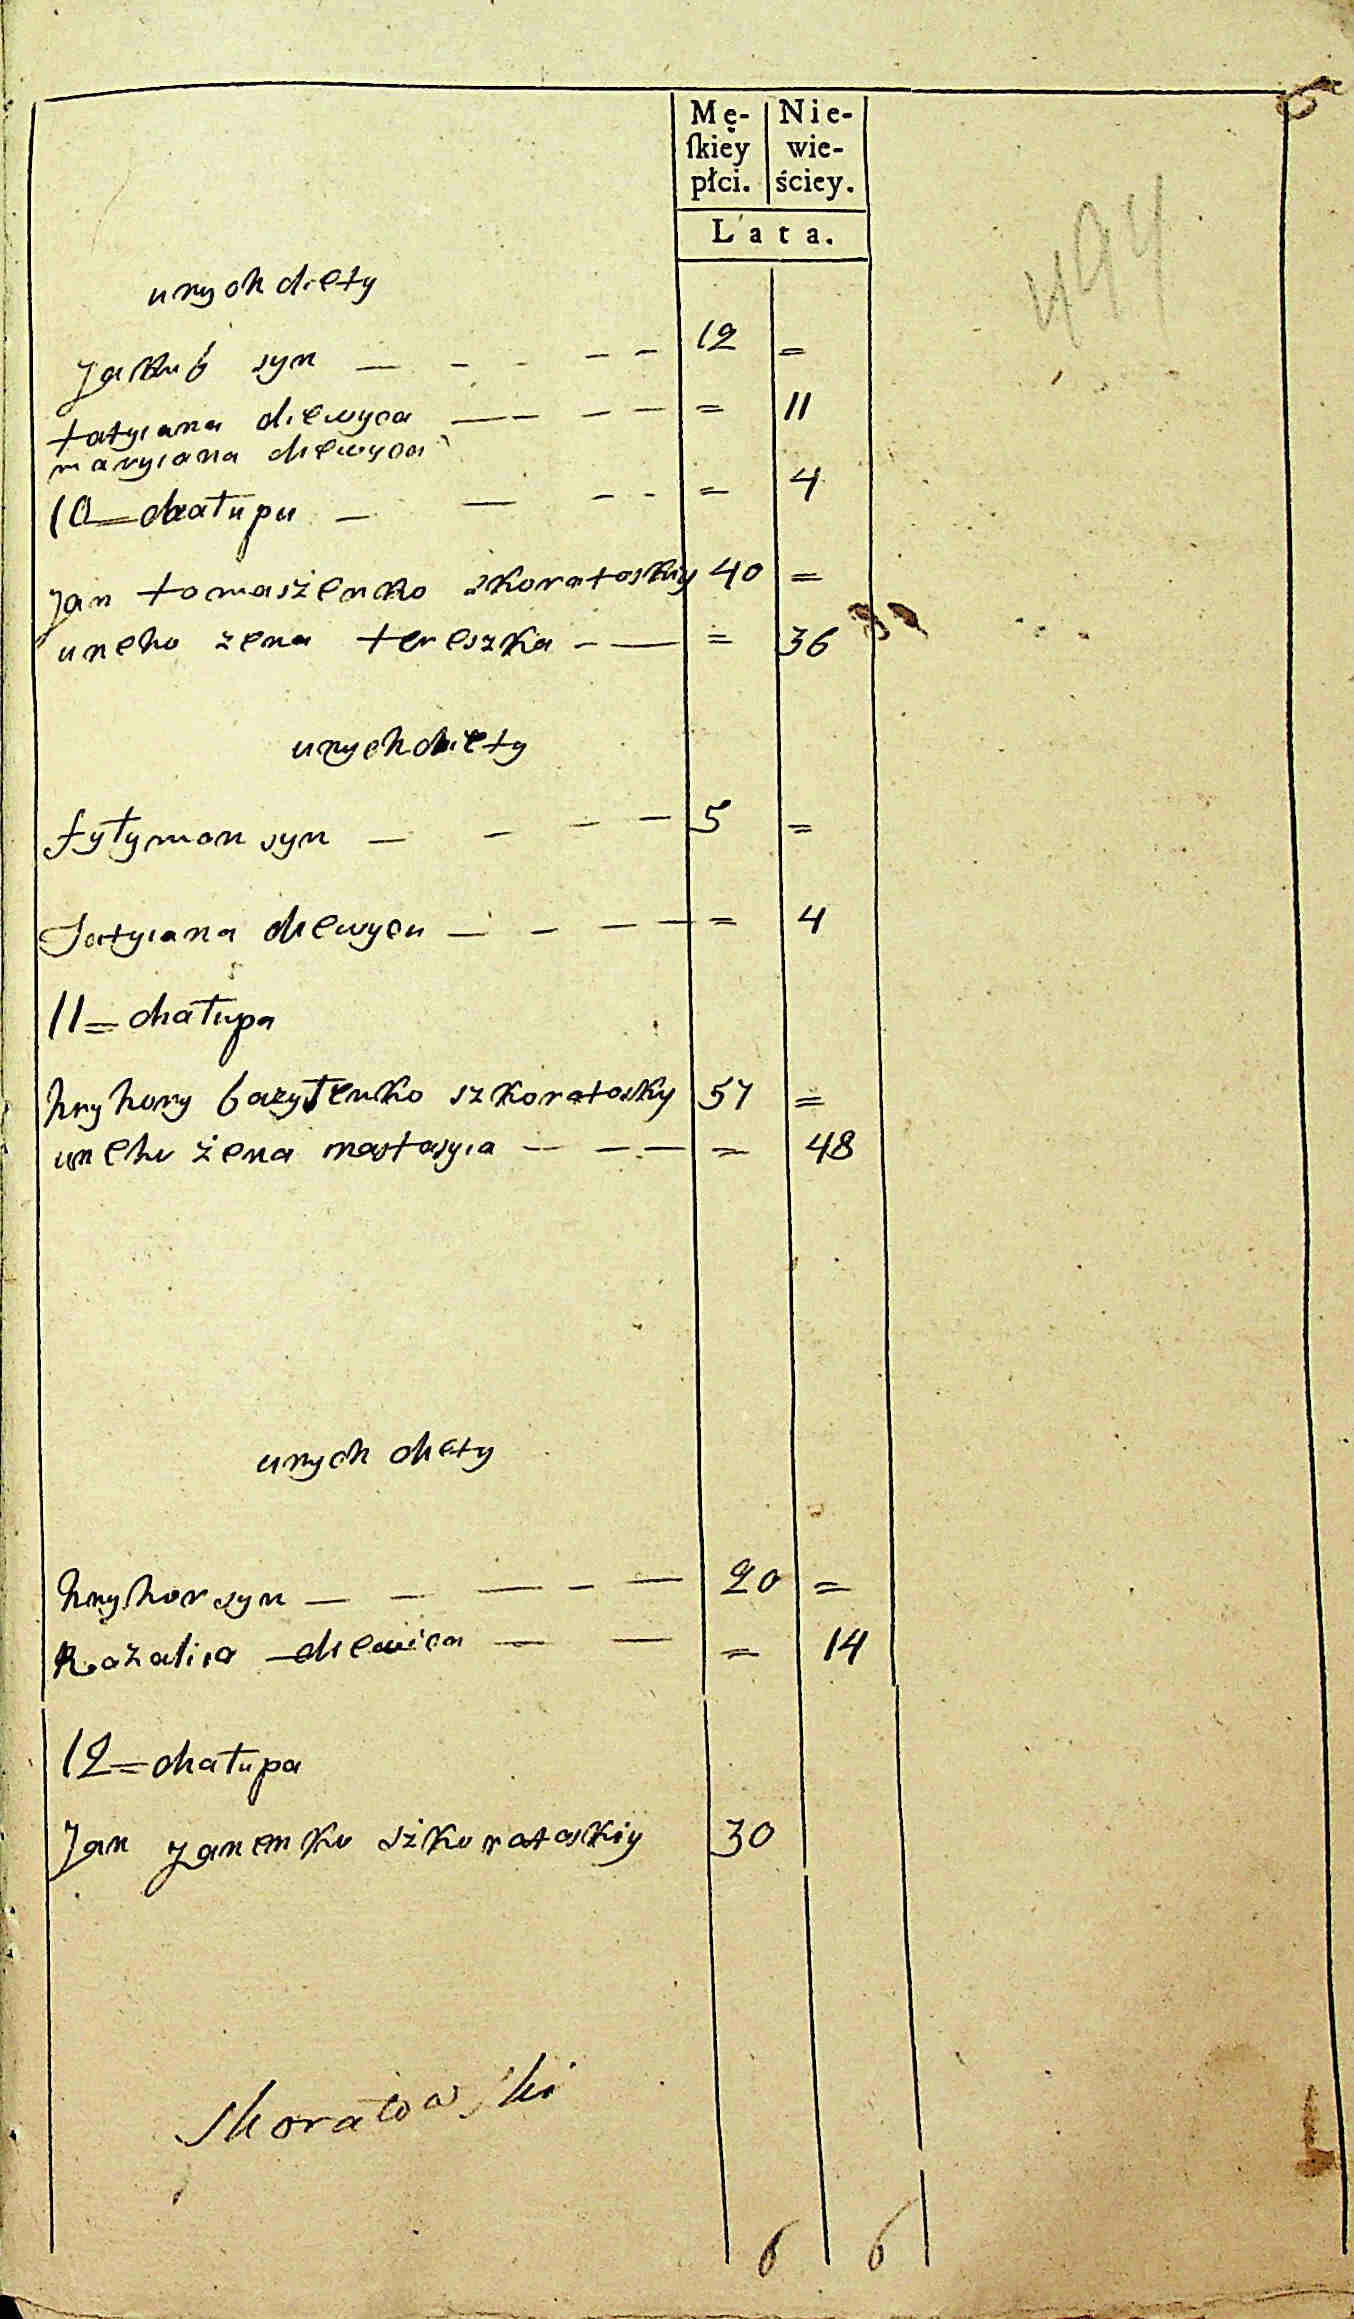 Mę-
ſkiey
płci.
Nie-
wie-
ściey.
Lata.
494
unych diety
Jakub syn — - - - - 12 =
tatyiana diewyca — - - - = 11
maryiana diewyca
10 = chałupa — — - - = 4
Jan tomaszenko skoratoskiy 40 =
uneho zena tereszka - — = 36
unych diety
fyłymon syn — - - - 5 =
Tatyiana diewyca — - - - = 4
11 = chałupa
hryhory bazylenko szkoratosky 57 =
uneho żena nastasyia - - - = 48
unych diety
hryhor syn — - — - — 20 =
Rozalija diewica — — = 14
12 = chałupa
Jan Janenko szkoratoskiy 30
Skoratowski
6 6